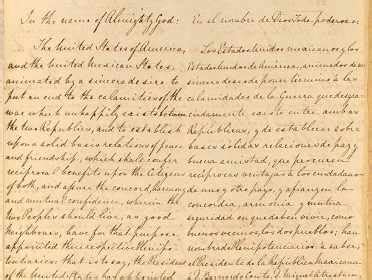 In the name of Almighty God:
The United States of America,
and the United Mexican States,
animated by a sincere desire to
put an end to the calamities of the
war which unhappily exists between
the two Republics, and to establish
upon a solid basis relations of peace
and friendship, which shall confer
reciprocal benefits upon the Citizens
of both, and assure the concord, harmony
and mutual confidence, wherein the
two Peoples should live, as good
Neighbours, have for that purpose
appointed their respective Plenipo-
tentiaries: that is to say, the President
of the United States has appointed
En el nombre de Dios Todo poderoso:
Los Estados Unidos mexicanos y los
Estados Unidos de América, animados de un
sincero deseo de poner término a las
calamidades de la Guerra que desgra-
ciadamente existe entre ambas
Repúblicas, y de establecer sobre
bases sólidas relaciones de paz y
buena amistad, que procuren
recíprocas ventajas a los ciudadanos
de uno y otro pais, y afianzen la
concordia, armonia y mutua
seguridad en que deben vivir, como
buenos vecinos, los dos pueblos; han
nombrado Plenipotenciarios: a saber,
el Presidente de la República mexicana